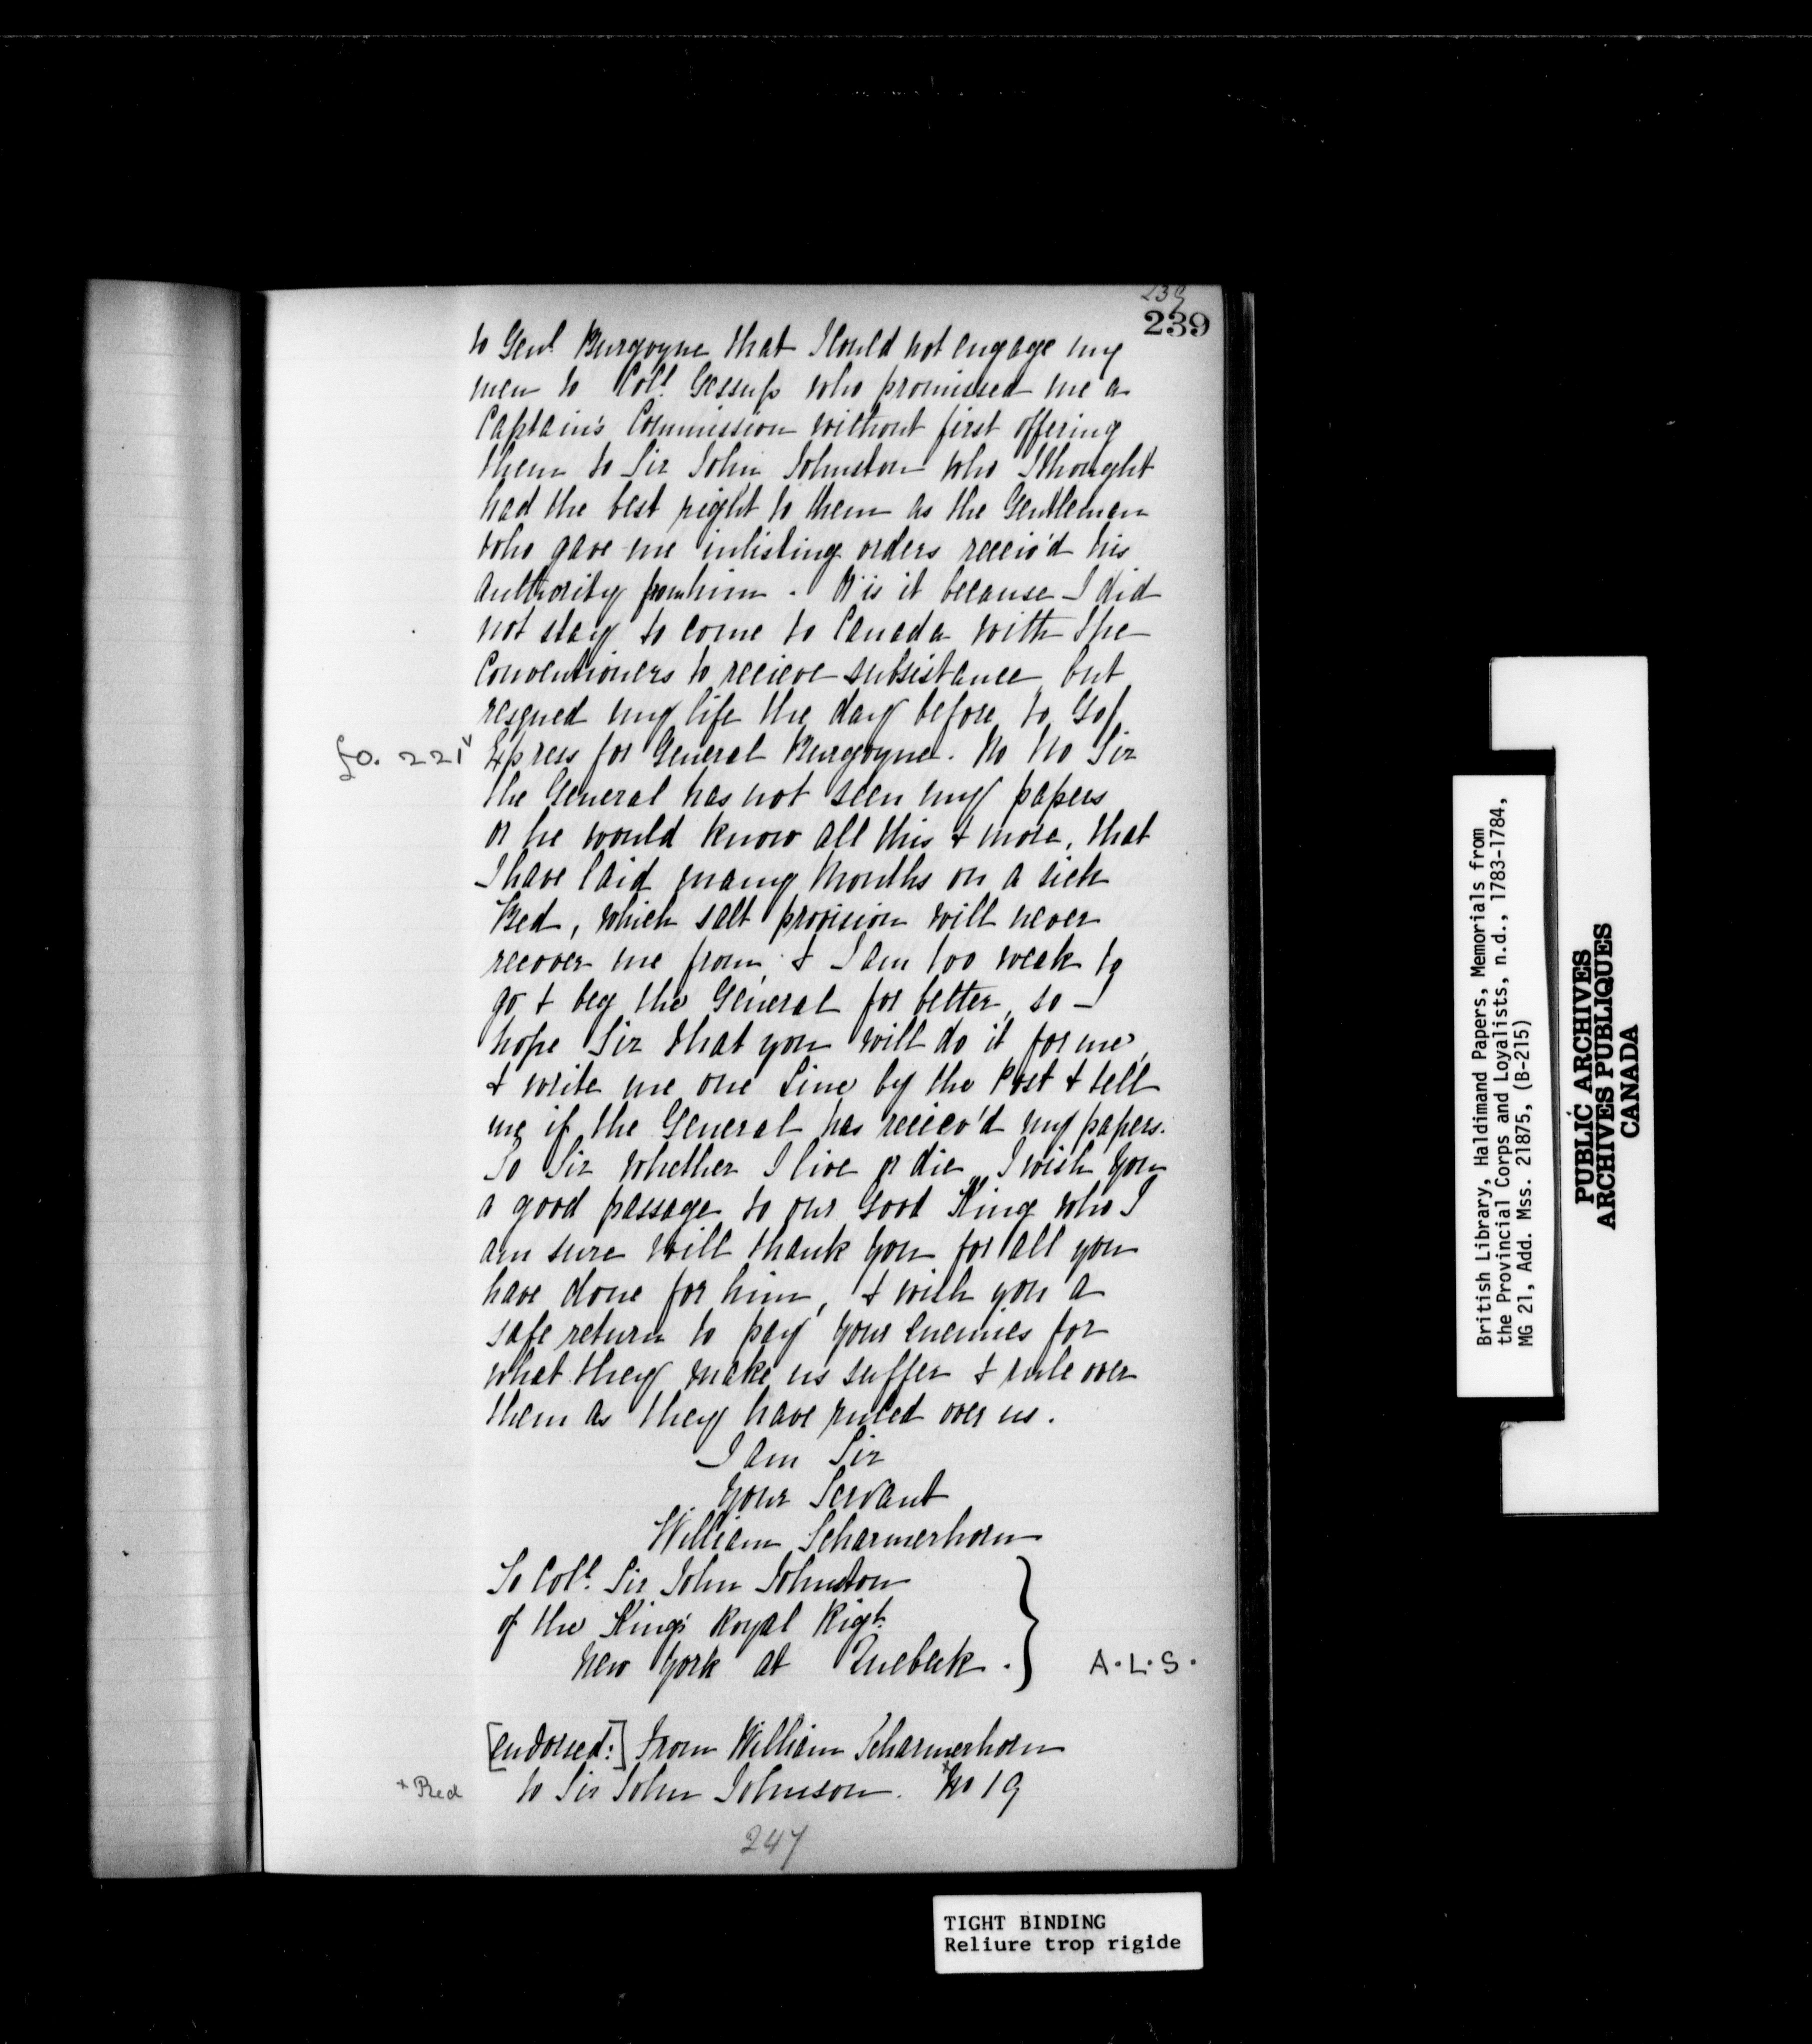 239
239
to Genl. Burgoyne that I Could not engage my
men to Coll. Gessups who promissed me a
Captain's Commission without first offering
them to Sir John Johnston who I thought
had the best right to them as the Gentleman
who gave me inlisting orders receiv'd his
authority from him. Or is it because I did
not stay to come to Canada with the
Conventioners to recieve subsistance, but
resqued my life the day before to Go
fo. 221v Express for General Burgoyne. No No Sir
the General has not seen my papers
or he would know all this & more, that
I have laid many Months on a sick
Bed, which salt provision will never
recover me from, & I am too weak to
go & beg the General for better, so I
hope Sir that you will do it for me,
& write me one Line by the Post & tell
me if the General has reciev'd my papers.
So Sir whether I live or die I wish you
a good passage to our Good King who I
am sure will thank you for all you
have done for him, & wish you a
safe return to pay your Enemies for
what they make us suffer & rule over
them as they have ruled over us.
I am Sir
your Servant
William Scharmerhorn
To Coll. Sir John Johnston
of the King's Royal Rigt.
New York at Quebeck.
A.L.S.
[endorsed:] From William Scharmerhorn
to Sir John Johnson. *No 19
*Red
247
British Library, Haldimand Papers, Memorials from
the Provincial Corps and Loyalists, n.d., 1783-1784,
MG 21, Add. Mss. 21875, (B-215)
PUBLIC ARCHIVES
ARCHIVES PUBLIQUES
CANADA
TIGHT BINDING
Reliure trop rigide